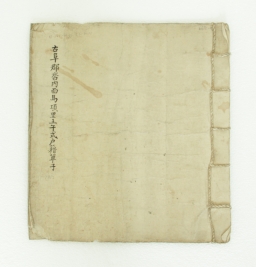 古阜郡畓內面馬項里上子式戶籍單子